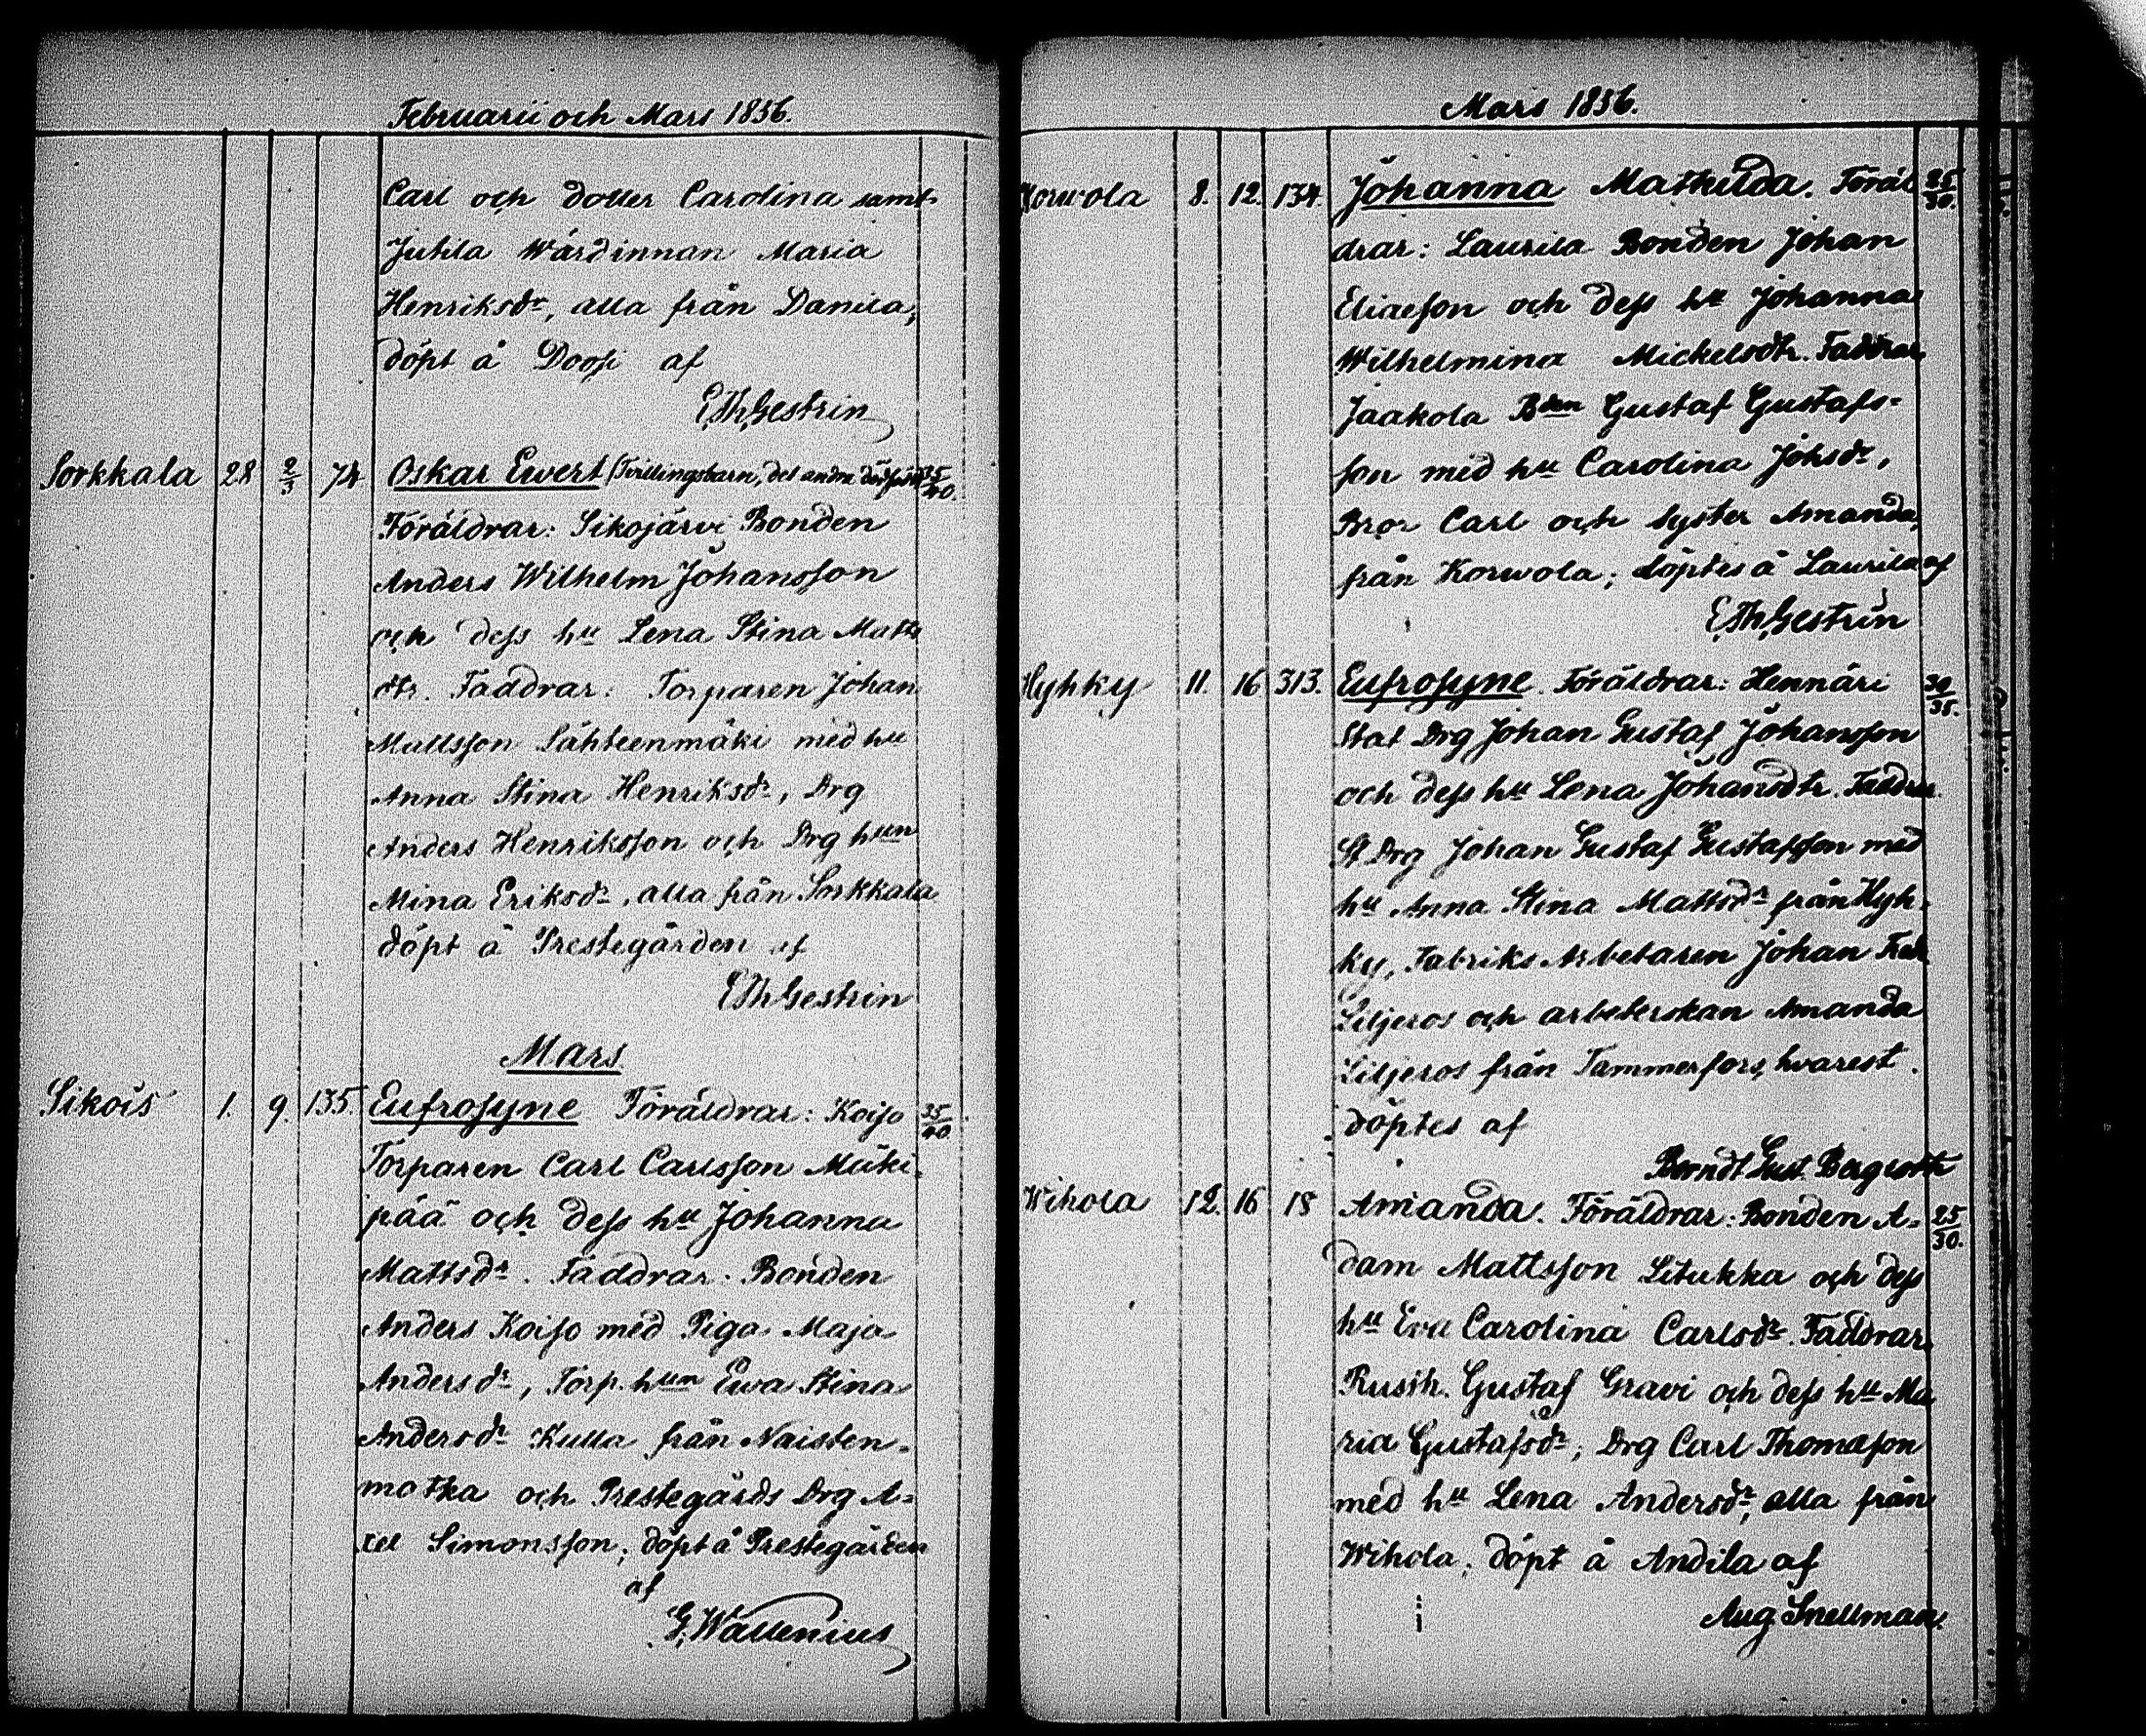 Februarii och Mars 1856.
Carl och dotter Carolina samt
Jutila Wärdinnan Maria
Henriksdr, alla från Danila;
döpt å Doosi af
E,Th,Gestrin
Sorkkala 28 2/3 74 Oskar Ewert (Tvillingsbarn, det andra dödfödt) 35/40.
Föräldrar: Sikojärvi Bonden
Anders Wilhelm Johansson
och dess hu Lena Stina Matts
dtr. Faddrar: Torparen Johan
Mattsson Sähteenmäki med hu
Anna Stina Henriksdr, Drg
Anders Henriksson och Drg hun
Mina Eriksdr, alla från Sorkkala
döpt å Prestegården af
EThGestrin
Mars
Sikois 1. 9. 135. Eufrosyne Föräldrar: Koiso 35/40
Torparen Carl Carlsson Mäki-
pää och dess hu Johanna
Mattsdr. Faddrar: Bonden
Anders Koiso med Piga Maja
Andersdr, Torp. hun Ewa Stina
Andersdr Kulla från Naisten-
matka och Prestegårds Drg A-
xel Simonsson; döpt å Prestegården
af
G. Wallenius
Mars 1856.
Korwola 8. 12. 134. Johanna Mathilda. Föräl 25/30.
drar: Laurila Bonden Johan
Eliaeson och dess hu Johanna
Wilhelmina Mickelsdtr. Faddrar
Jaakola Bden Gustaf Gustafs-
son med hu Carolina Johsdr,
Bror Carl och Syster Amanda,
från Korwola; döptes å Laurila af
E,Th,Gestrin
Hyhky 11. 16 313. Eufrosyne. Föräldrar: Hennäri 30/35.
Stat Drg Johan Gustaf Johansson
och dess hu Lena Johansdtr. Faddrar
St Drg Johan Gustaf Gustafsson med
hu Anna Stina Mattsdr från Hyh-
ky, Fabriks Arbetaren Johan Fredr
Liljeros och arbeterskan Amanda
Liljeros från Tammerfors, hvarest
döptes af
Berndt Gust. Bergroth
Wihola 12. 16 18 Amanda. Föräldrar: Bonden A- 25/30.
dam Mattsson Litukka och dess
hu Eva Carolina Carlsdr. Faddrar
Rusth. Gustaf Gravi och dess hu Ma
ria Gustafsdr, Drg Carl Thomæson
med hu Lena Andersdr, alla från
Wihola; döpt å Andila af
Aug Snellman.